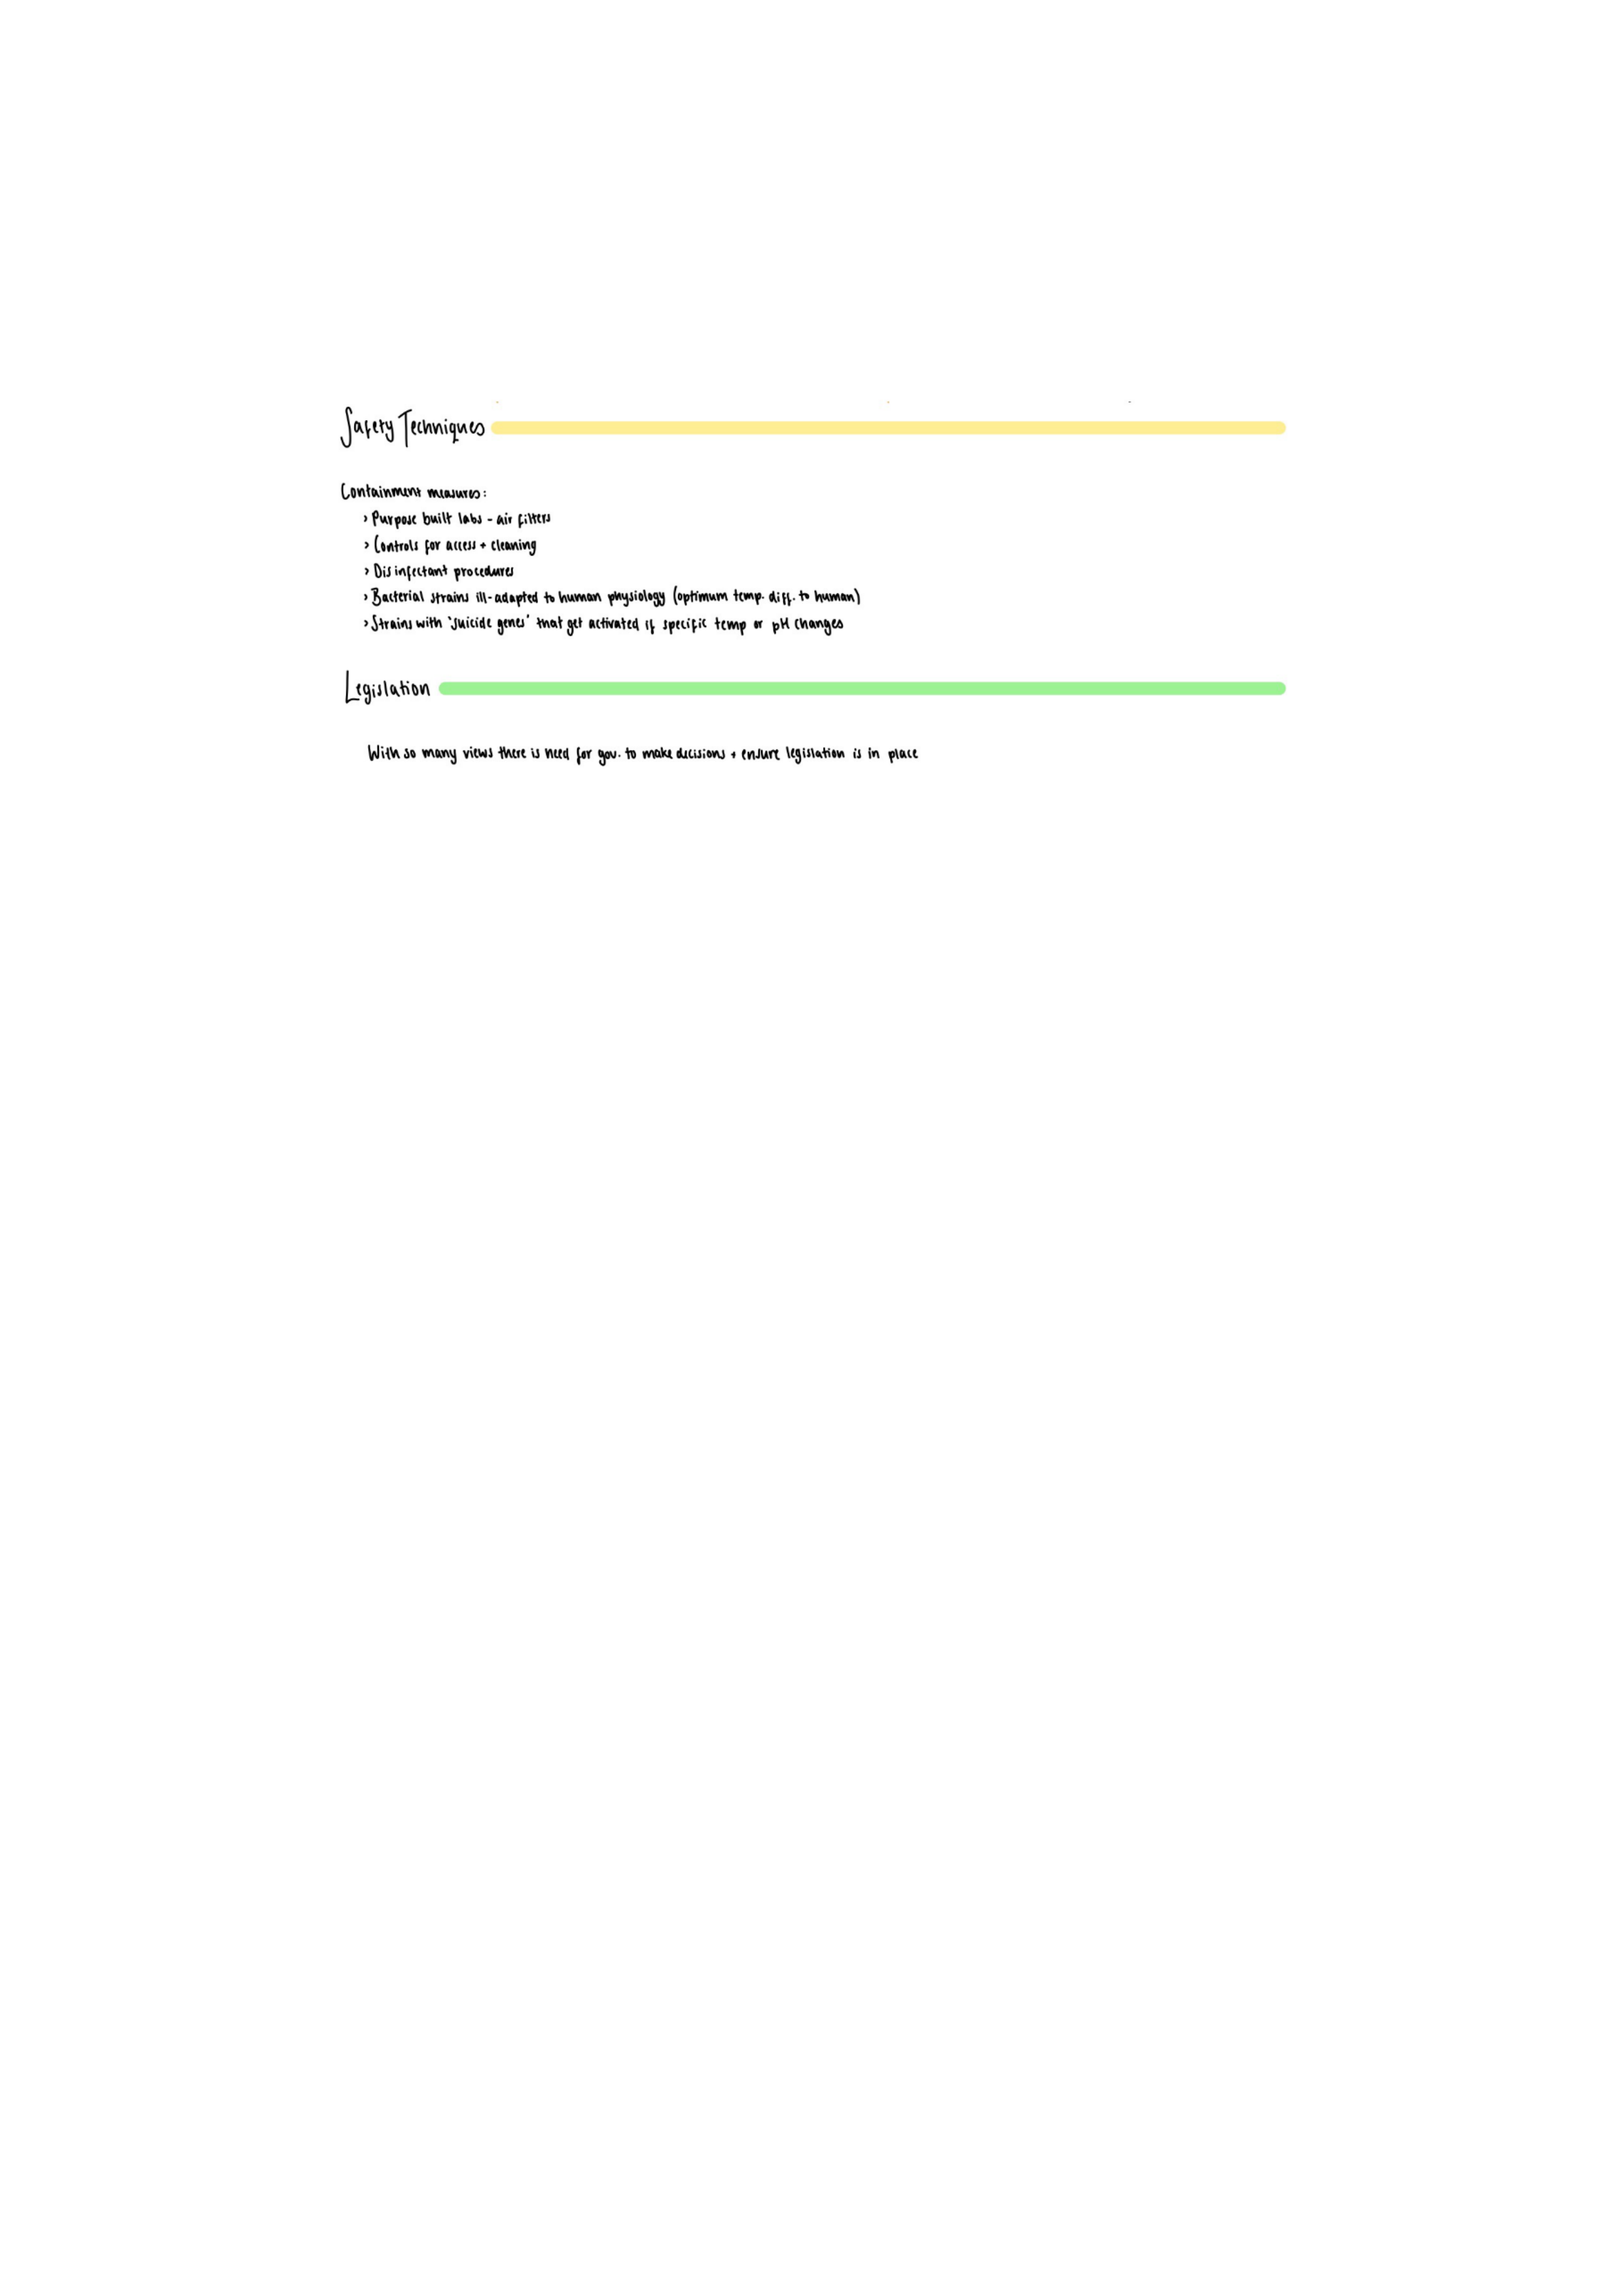 Safety Techniques
Containment measures:
> Purpose built labs - air filters
> Controls for access + cleaning
> Disinfectant procedures
> Bacterial strains ill-adapted to human physiology (optimum temp. diff. to human)
> Strains with 'suicide genes' that get activated if specific temp or pH changes
Legislation
With so many views there is need for gov. to make decisions + ensure legislation is in place